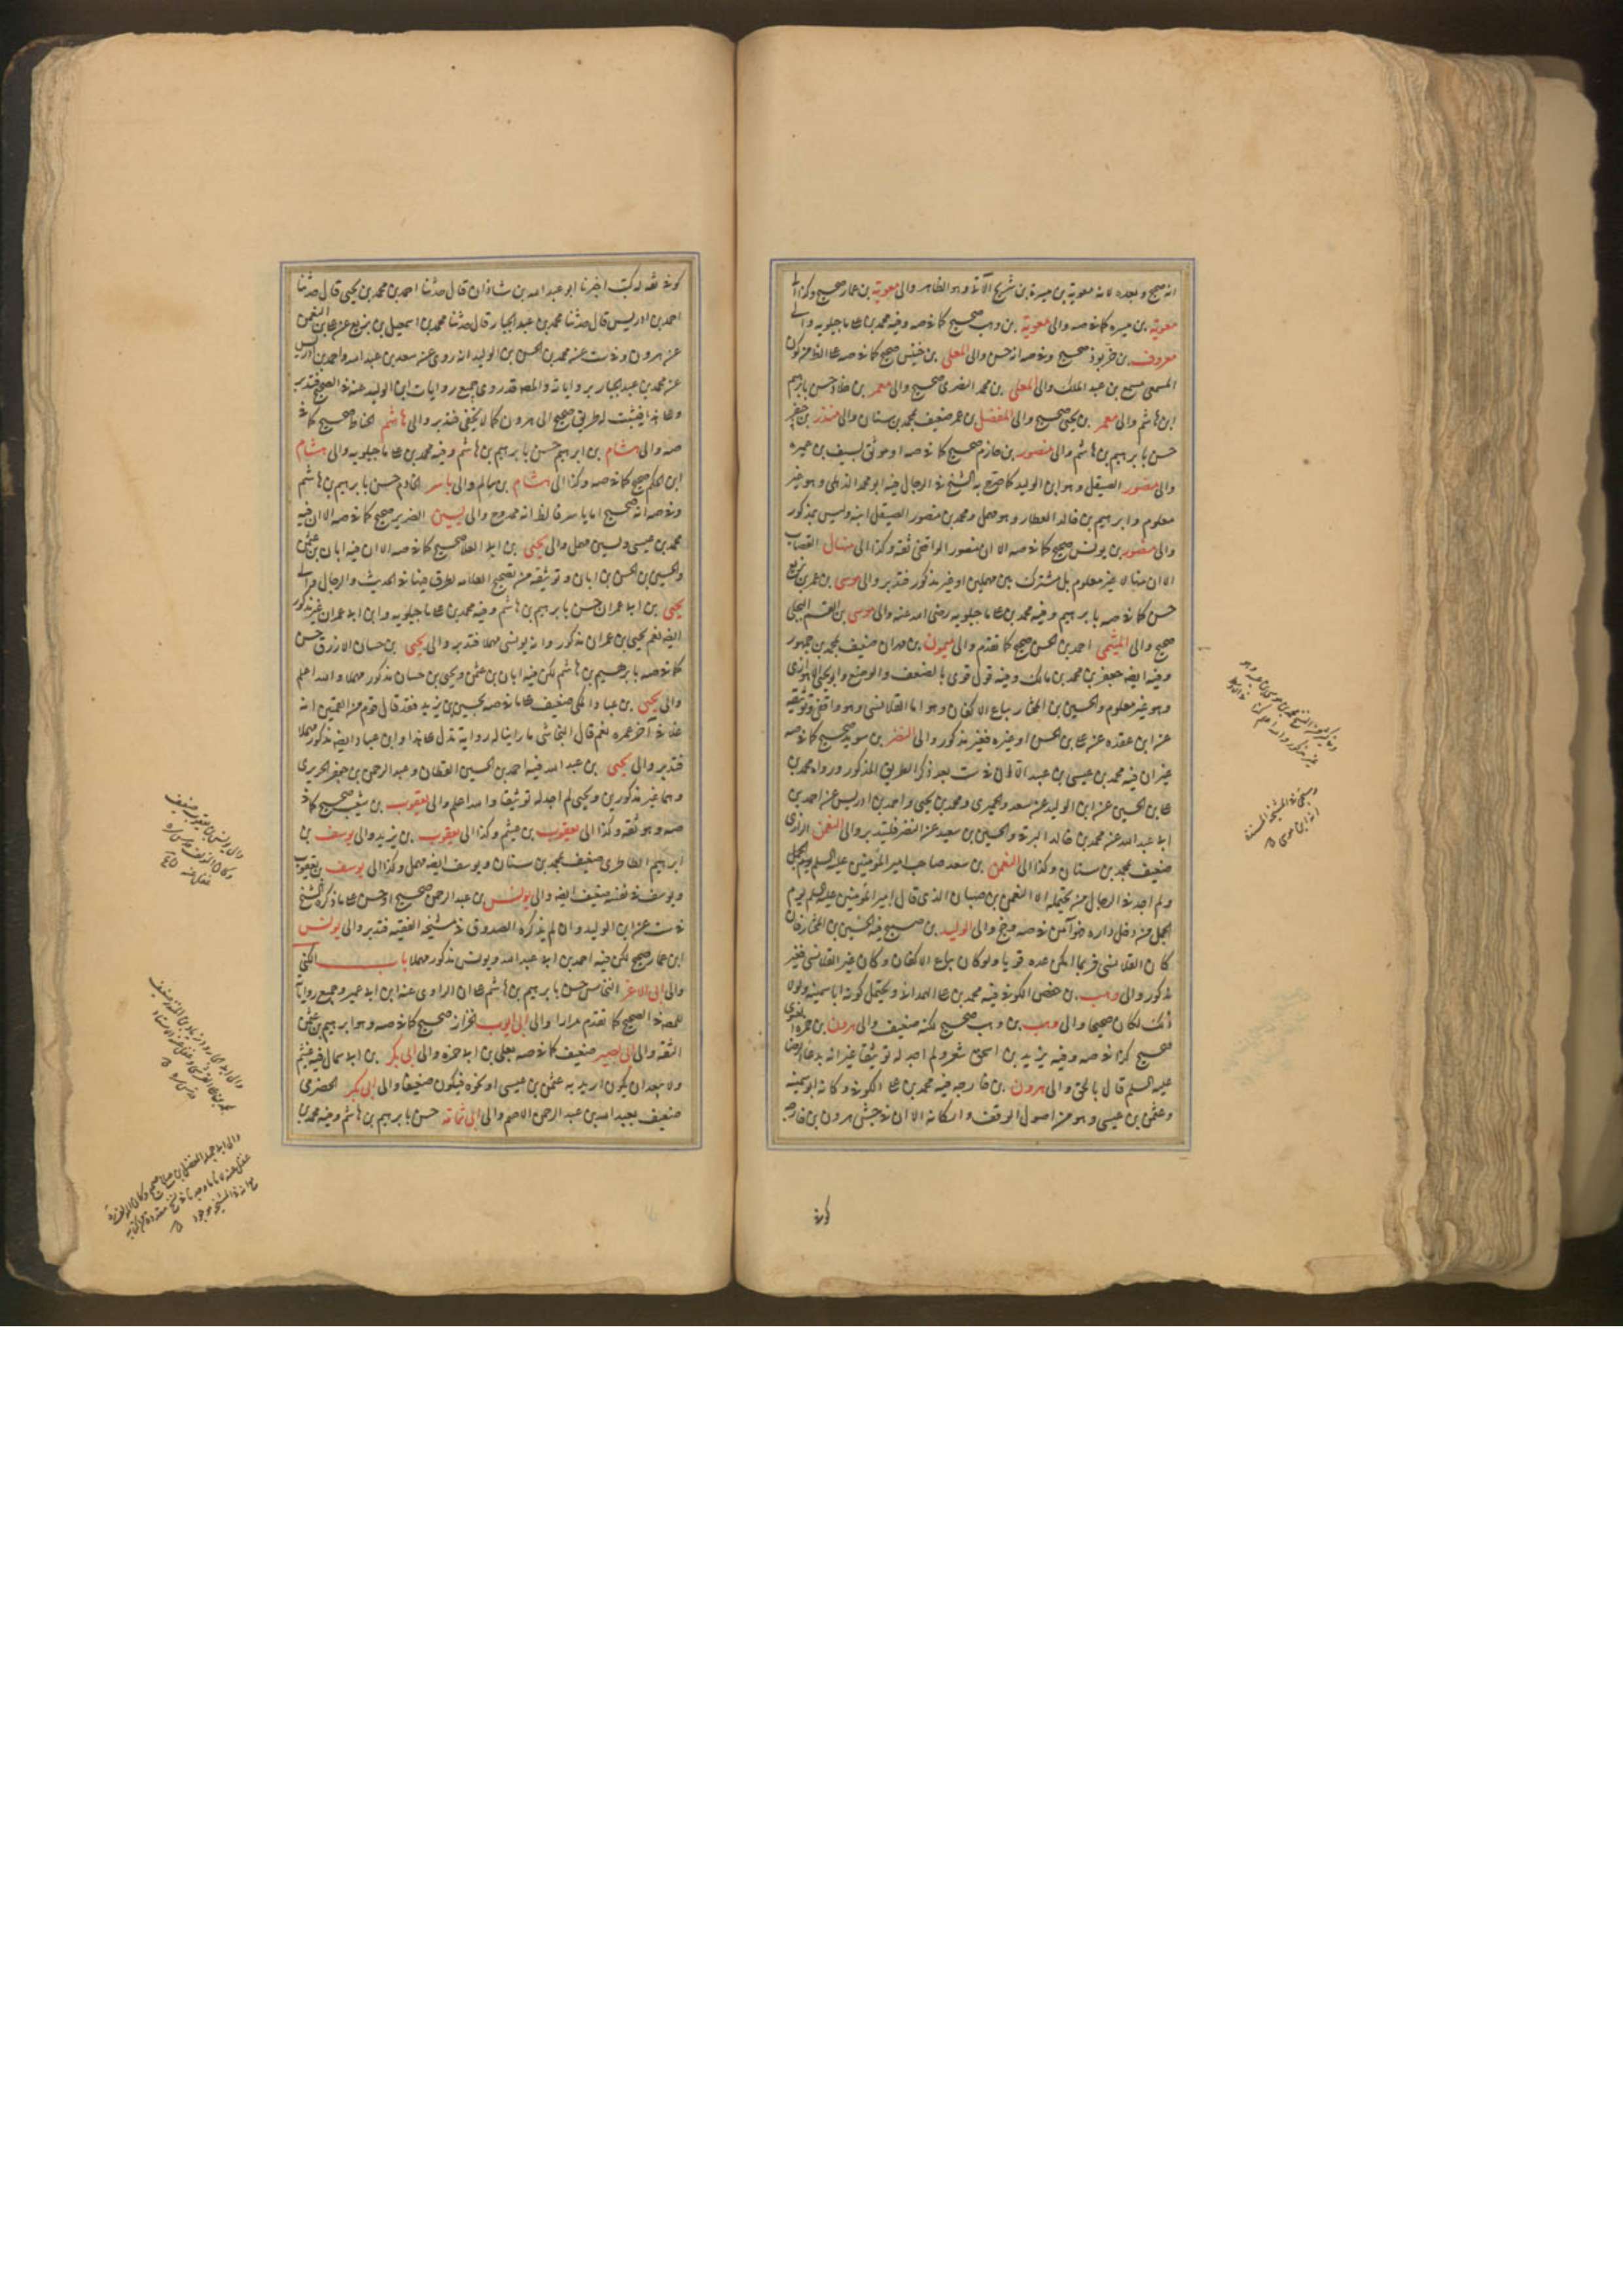 انه صحيح وبعده لانه معوية بن ميسرة بن شريح الآتى وهو الظاهر والى معوية بن عمار صحيح وكذا الى
معوية بن ميسره كما فى صه والى معوية بن وهب صحيح كما فى صه وفيه محمد بن على ماجيلويه والى
معروف بن خربوذ صحيح وفى صه انه حسن والى المعلى بن خنيس صحيح كما فى صه على الظ من كون
المسمعى مسمع بن عبد الملك والى المعلى بن محمد البصرى صحيح والى معمر بن خلاد حسن بابرهيم
ابن هاشم والى معمر بن يحيى صحيح والى المفضل بن عمر ضعيف بمحمد بن سنان والى منذر بن جيفر
حسن بابرهيم بن هاشم والى منصور بن حازم صحيح كما فى صه او موثق بسيف بن عميره
والى منصور الصيقل وهو ابن الوليد كما صرح به الشيخ فى الرجال فيه ابو محمد الذهلى وهو غير
معلوم وابرهيم بن خالد العطار وهو مهمل ومحمد بن منصور الصيقل ابنه وليس بمذكور
والى منصور بن يونس صحيح كما فى صه الا ان منصور الواقفى ثقة وكذا الى منهال القصاب
الا ان منهالا غير معلوم بل مشترك بين مهملين او غير مذكور فتدبر والى موسى بن عمر بن بزيع
حسن كما فى صه بابرهيم وفيه محمد بن على ماجيلويه رضى الله عنه والى موسى بن القسم البجلى
صحيح والى الميثمى احمد بن الحسن صحيح كما تقدم والى ميمون بن مهران ضعيف بمحمد بن جمهور
وفيه ايضه جعفر بن محمد بن مالك وفيه قول قوى بالضعف والوضع وابو يحيى الاهوازى
وهو غير معلوم والحسين بن المختار بياع الاكفان وهو اما القلانسى وهو واقفى وتوثيقه
عن ابن عقده عن على بن الحسن او غيره فغير مذكور والى النضر بن سويد صحيح كما فى صه
غير ان فيه محمد بن عيسى بن عبيد الا ان فى ست بعد ذكر الطريق المذكور ورواه محمد بن
على بن الحسين عن ابن الوليد عن سعد والحميرى ومحمد بن يحيى واحمد بن ادريس عن احمد بن
ابى عبد الله عن محمد بن خالد البرقى والحسين بن سعيد عن النضر فليتدبر والى النعمن الرازى
ضعيف بمحمد بن سنان وكذا الى النعمن بن سعد صاحب امير المؤمنين عليه السلم يوم الجمل
ولم اجد فى الرجال من يحتمله الا النعمن بن صهبان الذى قال امير المؤمنين عليه السلم يوم
الجمل من دخل داره فهو آمن فى صه وجخ والى الوليد بن صبيح فيه الحسين بن المختار فان
كان القلانسى فربما امكن عده قويا ولو كان بياع الاكفان وكان غير القلانسى فغير
مذكور والى وهب بن حفص الكوفى فيه محمد بن على الهمدانى ويحتمل كونه ابا سمينه ولولا
ذلك لكان صحيحا والى وهب بن وهب صحيح لكنه ضعيف والى هرون بن حمزة الغنوى
صحيح كذا فى صه وفيه يزيد بن اسحق شعر ولم اجد له توثيقا غير انه بدعاء الرضا
عليه السلم قال بالحق والى هرون بن خارجه فيه محمد بن على الكوفى وكانه ابو سمينه
وعثمن بن عيسى وهو من اصول الوقف واركانه الا ان فى جش هرون بن خارجه
كوفى
كوفى ثقه له كتب اخبرنا ابو عبد الله بن شاذان قال حدثنا احمد بن محمد بن يحيى قال حدثنا
احمد بن ادريس قال حدثنا محمد بن عبد الجبار قال حدثنا محمد بن اسمعيل بن بزيع عن على بن النعمن
عن هرون وفى ست عنه محمد بن الحسن بن الوليد انه روى عن سعد بن عبد الله واحمد بن ادريس
عن محمد بن عبد الجبار برواياته والمصه قد روى جميع روايات ابن الوليد عنه فى الصحيح فتدبر
وعلى هذا فيثبت له طريق صحيح الى هرون كما لا يخفى فتدبر والى هاشم الحناط صحيح كما فى
صه والى هشام بن ابرهيم حسن بابرهيم بن هاشم وفيه محمد بن على ماجيلويه والى هشام
ابن الحكم صحيح كما فى صه وكذا الى هشام بن سالم والى ياسر الخادم حسن بابرهيم بن هاشم
وفى صه انه صحيح اما ياسر فالظ انه ممدوح والى يسين الضرير صحيح كما فى صه الا ان فيه
محمد بن عيسى ويسين مهمل والى يحيى بن ابى العلا صحيح كما فى صه الا ان فيه ابان بن عثمن
والحسين بن الحسن بن ابان وتوثيقه من تصحيح العلامه لطرق هنا فى الحديث والرجال والى
يحيى بن ابى عمران حسن بابرهيم بن هاشم وفيه محمد بن على ماجيلويه وابن ابى عمران غير مذكور
ايضه نعم يحيى بن عمران مذكور وانه يونسى مهملا فتدبر والى يحيى بن حسان الازرق حسن
كما فى صه بابرهيم بن هاشم لكن فيه ابان بن عثمن ويحيى بن حسان مذكور مهملا والله اعلم
والى يحيى بن عباد المكى ضعيف على ما فى صه بحسين بن يزيد فقد قال قوم من القميين انه
غلا فى آخر عمره نعم قال النجاشى ما راينا له رواية تدل على هذا وابن عباد ايضه مذكور مهملا
فتدبر والى يحيى بن عبد الله فيه احمد بن الحسين القطان وعبد الرحمن بن جعفر الحريرى
وهما غير مذكورين ويحيى لم اجد له توثيقا والله اعلم والى يعقوب بن شعيب صحيح كما فى
صه وهو ثقه وكذا الى يعقوب بن عيثم وكذا الى يعقوب بن يزيد والى يوسف بن
ابرهيم الطاطرى ضعيف بمحمد بن سنان ويوسف ايضه مهمل وكذا الى يوسف بن يعقوب
ويوسف فى نفسه ضعيف ايضه والى يونس بن عبد الرحمن صحيح او حسن على ما ذكره الشيخ
فى ست عن ابن الوليد وان لم يذكره الصدوق فى مشيخة الفقيه فتدبر والى يونس
ابن عمار صحيح لكن فيه احمد بن ابى عبد الله ويونس مذكور مهملا باب الكنى
والى ابى الاغر النخاس حسن بابرهيم بن هاشم على ان الراوى عنه ابن ابى عمير وجميع رواياته
للمصه فى الصحيح كما تقدم مرارا والى ابى ايوب الخزاز صحيح كما فى صه وهو ابرهيم بن عثمن
الثقه والى ابى بصير ضعيف كما فى صه بعلى بن ابى حمزه والى ابى بكر بن ابى سمال فيه عيثم
ولا يبعد ان يكون اريد به عثمن بن عيسى او نحوه فيكون ضعيفا والى ابى بكر الحضرمى
ضعيف بعبد الله بن عبد الرحمن الاصم والى ابى ثمامه حسن بابرهيم بن هاشم وفيه محمد بن